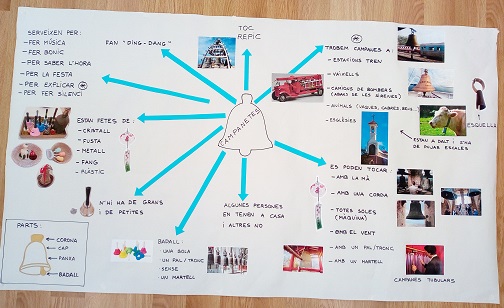 SERVEIXEN PER:
- FER MÚSICA
- FER BONIC
- PER SABER L'HORA
- PER LA FESTA
- PER EXPLICAR
- PER FER SILENCI
FAN "DING-DANG"
TOC
REPIC
TROBEM CAMPANES A:
- ESTACIONS TREN
- VAIXELLS
- CAMIONS DE BOMBERS
(ABANS DE LES SIRENES)
- ANIMALS (VAQUES, CABRES, BENS...)
- ESGLÈSIES
ESQUELLA
ESTAN A DALT I S'HA
DE PUJAR ESCALES
CAMPANETES
ESTAN FETES DE:
- CRISTALL
- FUSTA
- METALL
- FANG
- PLÀSTIC
N'HI HA DE GRANS
I DE PETITES
PARTS:
CORONA
CAP
PANXA
BADALL
BADALL
- UNA BOLA
- UN PAL / TRONC
- SENSE
- UN MARTELL
ALGUNES PERSONES
EN TENEN A CASA
I ALTRES NO
ES PODEN TOCAR:
- AMB LA MÀ
- AMB UNA CORDA
- TOTES SOLES
(MAQUINA)
- AMB EL VENT
- AMB UN PAL/TRONC
- AMB UN MARTELL
CAMPANES TUBULARS